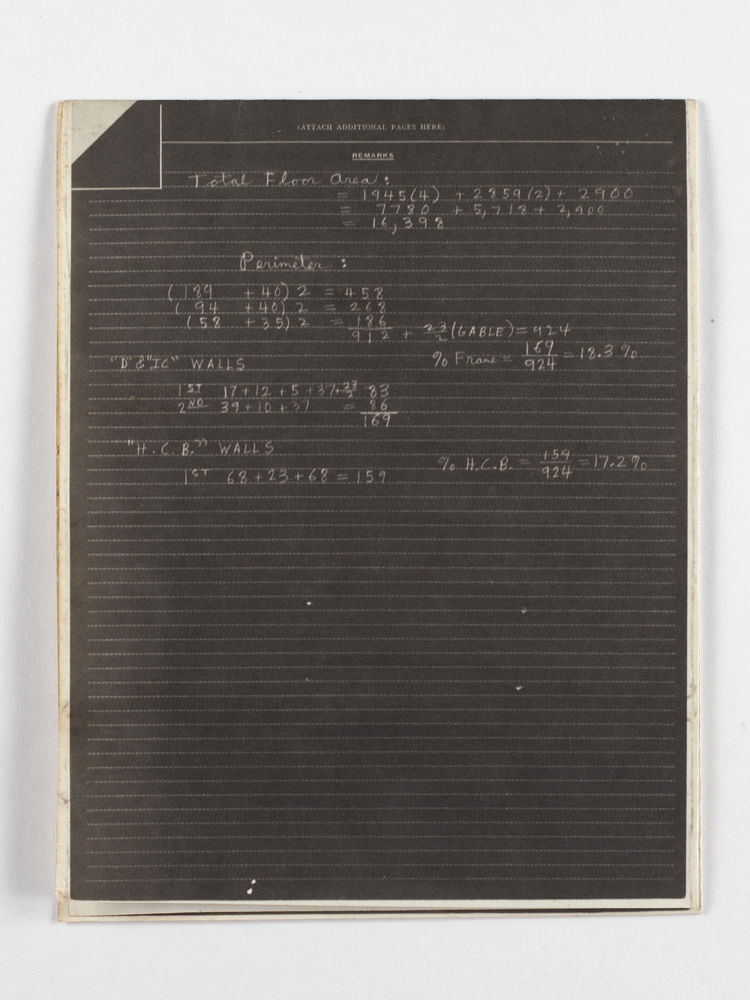 (ATTACH ADDITIONAL PAGES HERE)
REMARKS
Total Floor Area:
= 1945(4) + 2859(2) + 2900
= 7780 + 5,718 + 2,900
= 16,398
Perimeter :
(189 + 40) 2 = 458
(94 + 40) 2 = 268
(58 + 35) 2 = 186
912 + 23/2 (GABLE) = 924
"D" & "IC" WALLS
% Frame = 169/924 = 18.3 %
1ST 17 + 12 + 5 + 37 + 23/2 83
2ND 39 + 10 + 37 = 86
169
"H.C.B." WALLS
% H.C.B. = 159/924 = 17.2 %
1ST 68 + 23 + 68 = 159